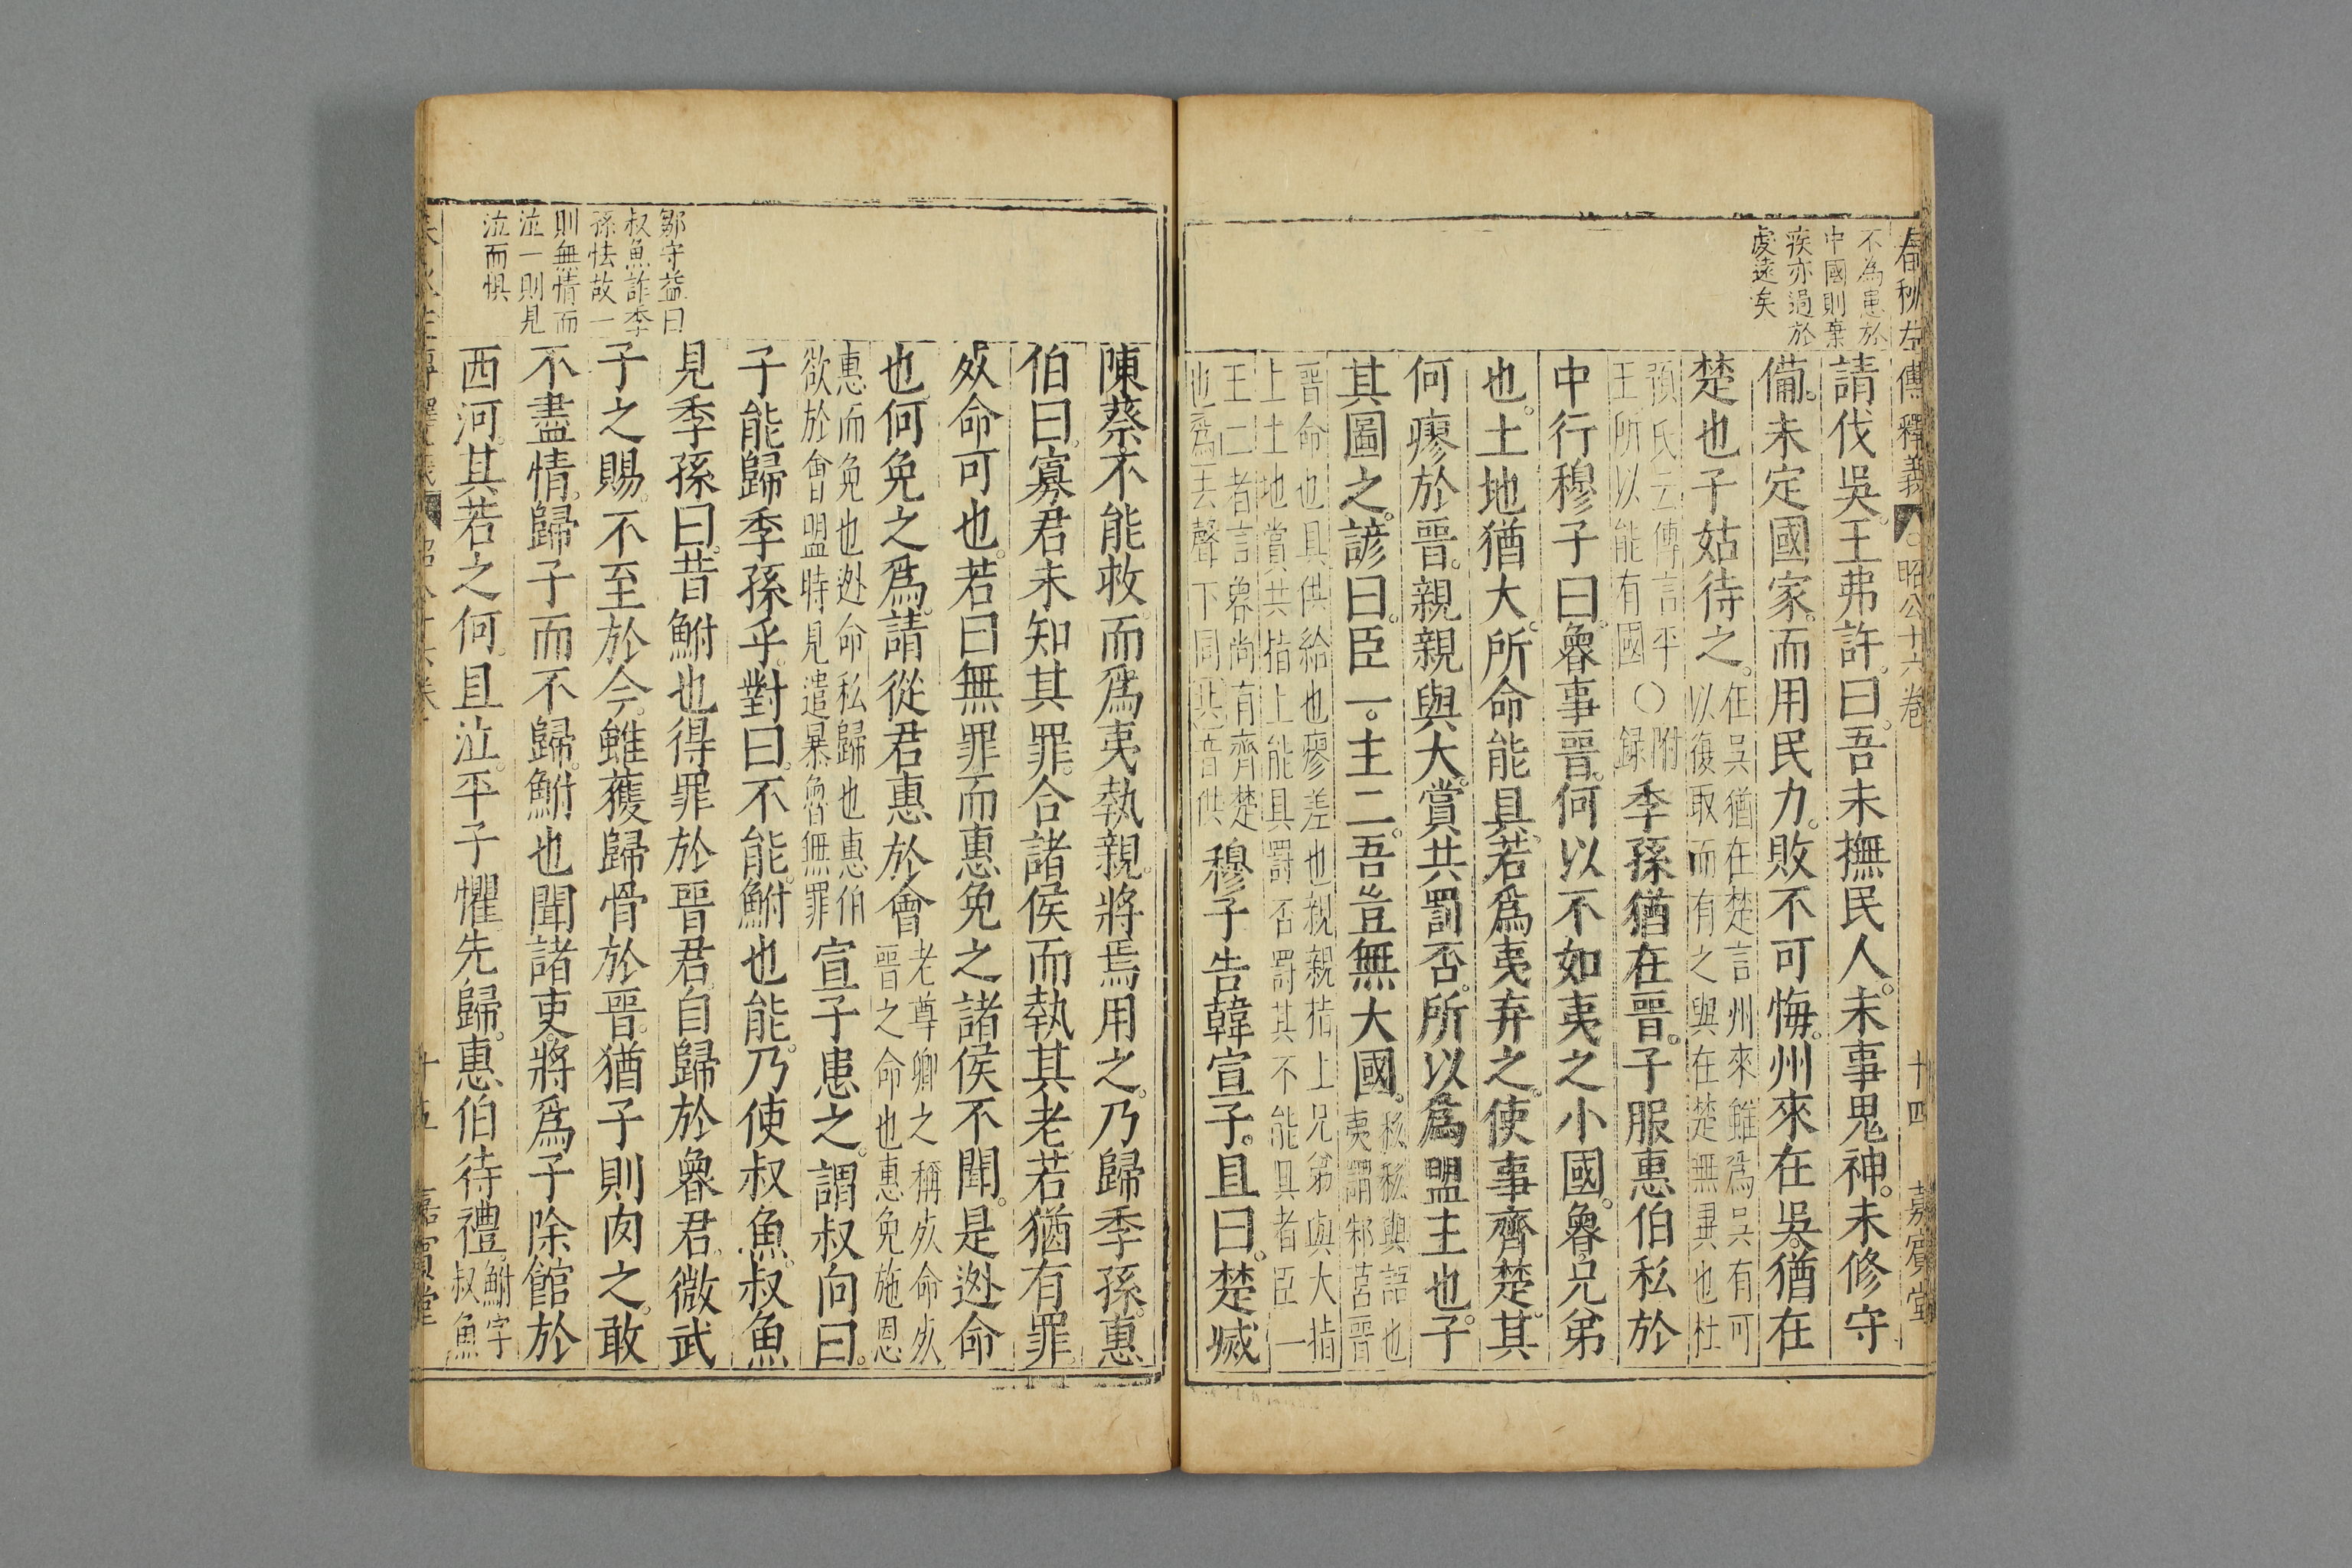 春秋左傳釋義 昭公十六卷 十四 嘉賓堂
不為患於
中國則棄
疾亦過於
虔遠矣
請伐吳。王弗許。曰。吾未撫民人。未事鬼神。未修守
備。未定國家。而用民力。敗不可悔。州來在吳。猶在
楚也。子姑待之。
在吳猶在楚言州來雖爲吳有可
以復取而有之與在楚無異也杜
預氏云傳言平
王所以能有國
〇附
錄
季孫猶在晉。子服惠伯私於
中行穆子曰。魯事晉。何以不如夷之小國。魯兄弟
也。土地猶大。所命能具。若爲夷弃之。使事齊楚。其
何瘳於晉。親親與大。賞共罰否。所以爲盟主也。子
其圖之。諺曰。臣一。主二。吾豈無大國。
私私與語也
夷謂邾莒晉
晉命也具供給也瘳差也親親指上兄弟與大指
上土地賞共指上能具罰否罰其不能具者臣一
主二者言魯尚有齊楚
也爲去聲下同共音供
穆子告韓宣子。且曰。楚滅
陳蔡不能救。而爲夷執親。將焉用之。乃歸季孫。惠
伯曰。寡君未知其罪。合諸侯而執其老。若猶有罪。
死命可也。若曰無罪而惠免之。諸侯不聞。是逃命
也。何免之爲。請從君惠於會
老尊卿之稱死命死
晉之命也惠免施恩
惠而免也逃命私歸也惠伯
欲於會盟時見遣暴魯無罪
宣子患之。謂叔向曰。
子能歸季孫乎。對曰。不能。鮒也能。乃使叔魚。叔魚
見季孫曰。昔鮒也得罪於晉君。自歸於魯君。微武
子之賜。不至於今。雖獲歸骨於晉。猶子則肉之。敢
不盡情。歸子而不歸。鮒也聞諸吏。將爲子除館於
西河。其若之何。且泣。平子懼。先歸。惠伯待禮。
鮒字
叔魚
鄒守益曰
叔魚詐季
孫怯故一
則無情而
泣一則見
泣而惧
十五 嘉賓堂